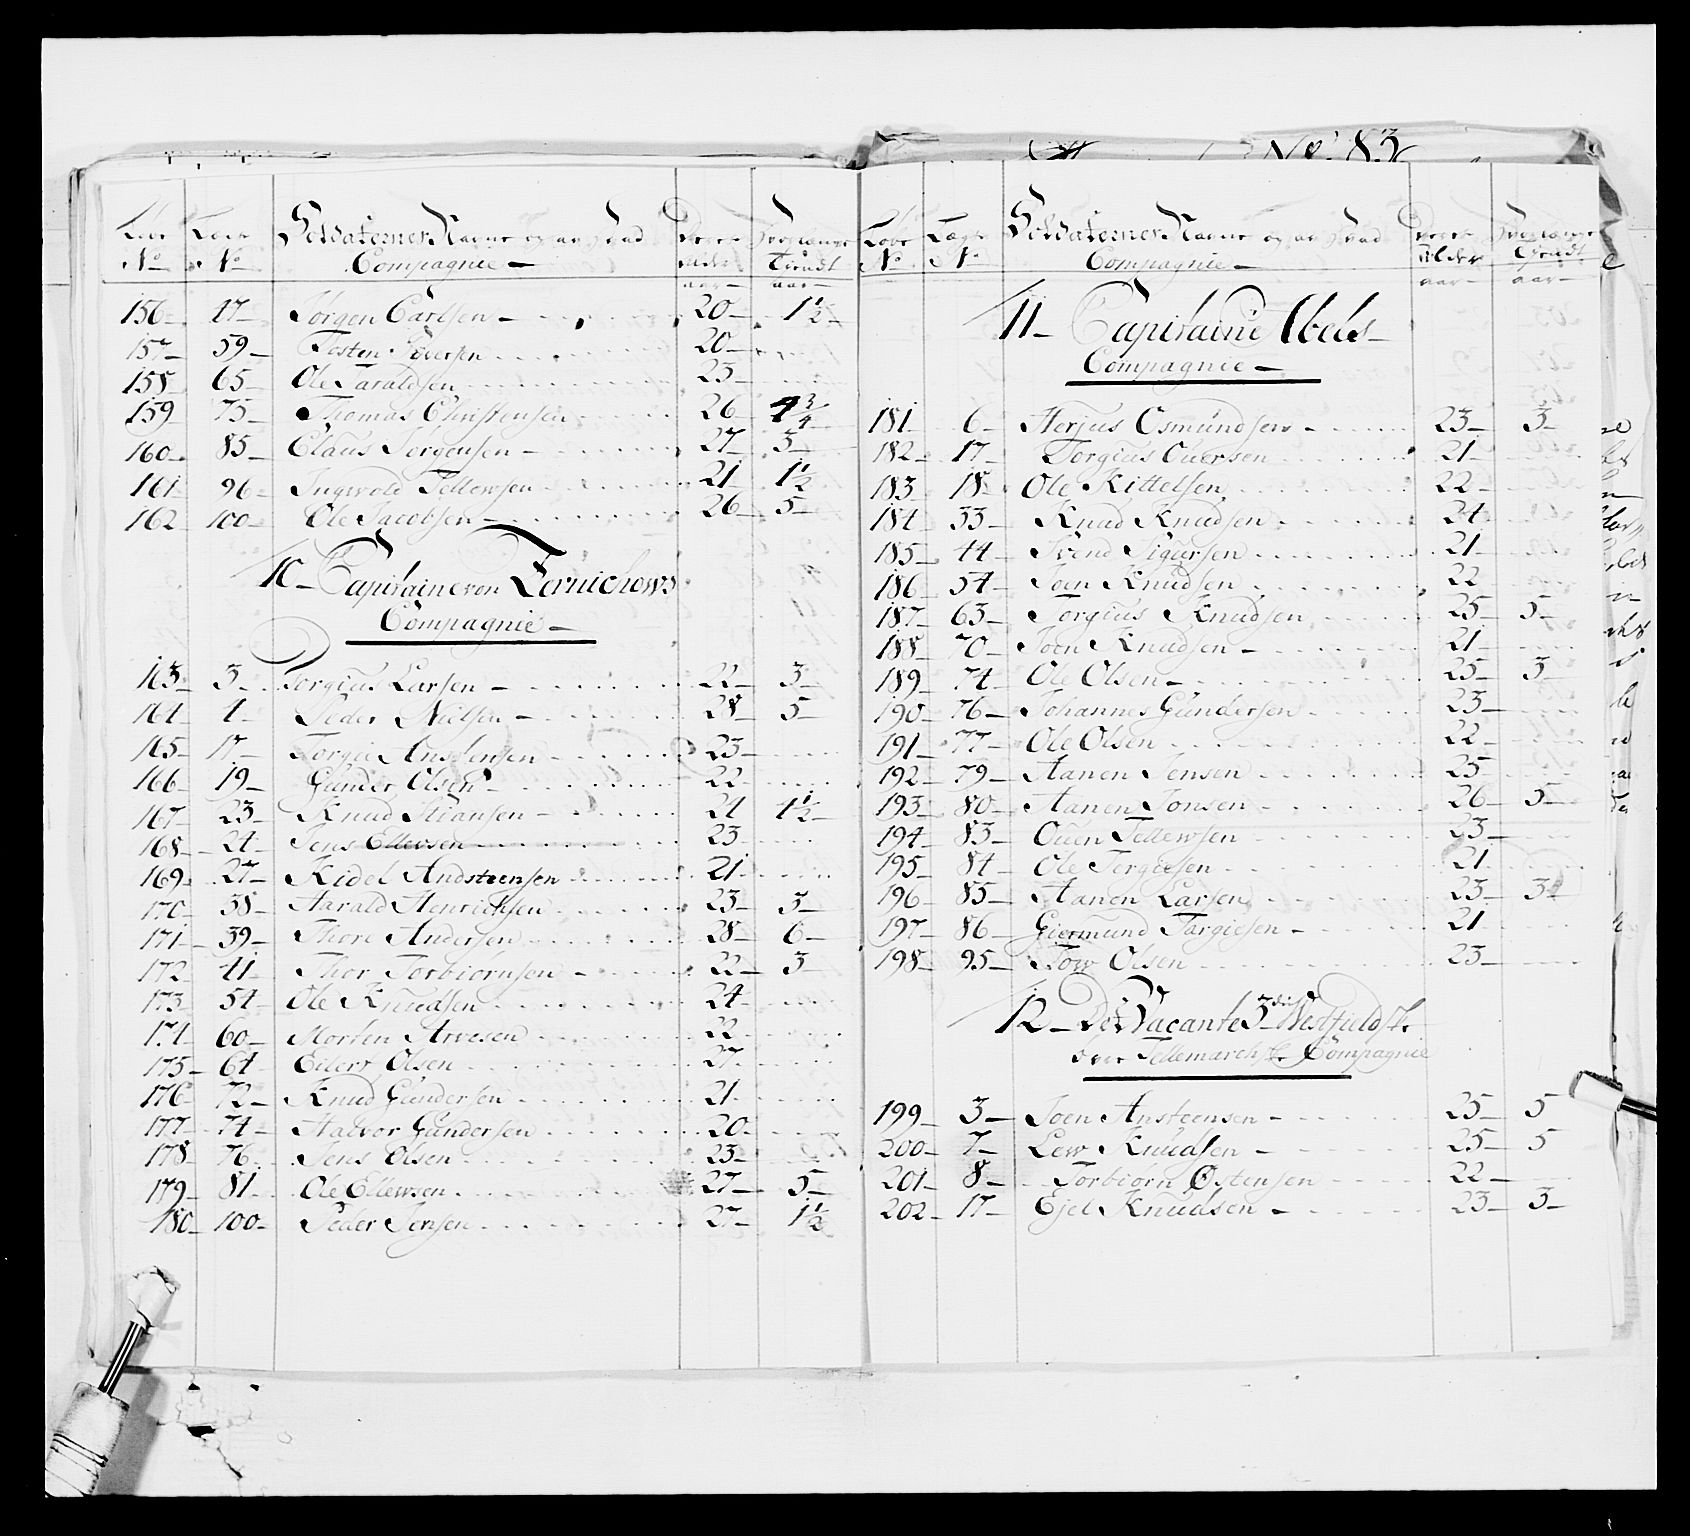 Løbe Lægs Soldaternes Navne og av hvad Deres Hvorlænge
No No Compagnie Alder Tiendt
aar aar
156 47 Jørgen Carlsen 20 1½
157 59 Tosten Iversen 20
158 65 Ole Taraldsen 23
159 75 Thomas Christensen 26 4¾
160 85 Claus Jørgensen 27 5
161 96 Ingwold Tellewsen 21 1½
162 100 Ole Jacobsen 26 5
10 Capitaine von Zernichows
Compagnie
163 3 Torgius Larsen 22 3
164 4 Peder Nielsen 28 5
165 17 Torgie Anstensen 23
166 19 Gunder Olsen 22
167 23 Knud 24 4½
168 24 Jens Ellewsen 23
169 27 Kidel Andsteensen 21
170 38 Harald Henrichsen 23 3
171 39 Thore Andersen 28 6
172 41 Thor Torbiørnsen 22 3
173 54 Ole Knudsen 24
174 60 Morten Arvesen 22
175 64 Eilert Olsen 27
176 72 Knud Gundersen 21
177 74 Halvor Gundersen 20
178 76 Jens Olsen 23
179 81 Ole Ellewsen 27 5
180 100 Peder Jensen 27 1½
No. 83
Løbe Lægs Soldaternes Navne og av hvad Deres Hvorlænge
No No Compagnie Alder Tiendt
aar aar
11 Capitaine Abels
Compagnie
181 6 Herjus Osmundsen 23 3
182 17 Torgius Ouersen 21
183 18 Ole Kittelsen 22
184 33 Knud Knudsen 24
185 44 Svend Sigursen 21
186 54 Joen Knudsen 22
187 63 Torgius Knudsen 25 5
188 70 Joen Knudsen 21
189 74 Ole Olsen 25 3
190 76 Johannes Gundersen 23
191 77 Ole Olsen 22
192 79 Aanen Jensen 25
193 80 Aanen Jonsen 26 5
194 83 Ouen Tellewsen 23
195 84 Ole Tergiesen 21
196 85 Aanen Larsen 23 3
197 86 Giermund Targiesen 21
198 95 Tow Olsen 23
12 Det Vacante 3die Westfieldske
Tellemarchske Compagnie
199 3 Joen Ansteensen 25 5
200 7 Lew Knudsen 25 5
201 8 Torbiørn Østensen 22
202 17 Ejel Knudsen 23 3